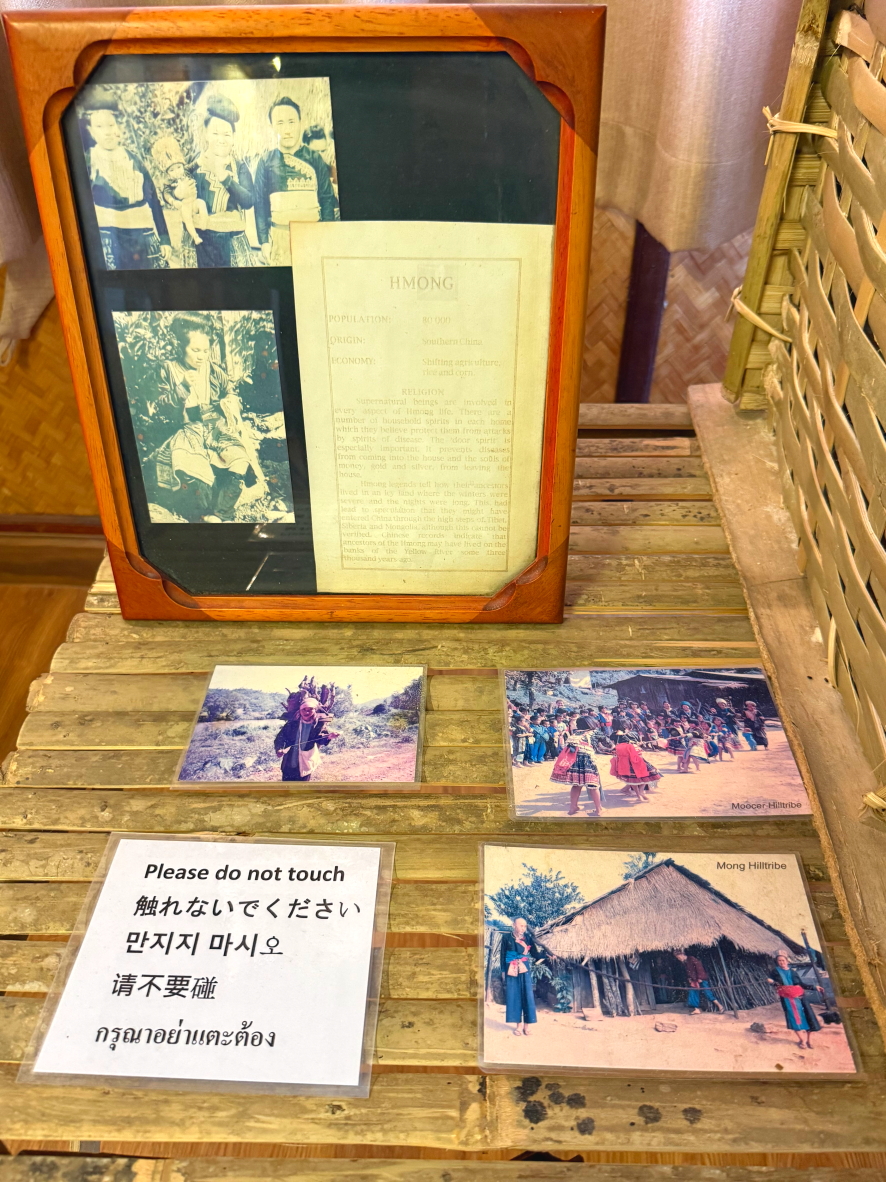 HMONG
POPULATION: 80 000
ORIGIN: Southern China
ECONOMY: Shifting agriculture,
rice and corn.
RELIGION
Supernatural beings are involved in
every aspect of Hmong life. There are a
number of household spirits in each home
which they believe protect them from attacks
by spirits of disease. The door spirit is
especially important, it prevents diseases
from coming into the house and the souls of
money, gold and silver, from leaving the
house.
Hmong legends tell how their ancestors
lived in an icy land where the winters were
severe and the nights were long. This had
lead to speculation that they might have
entered China through the high steps of Tibet,
Siberia and Mongolia, although this cannot be
verified. Chinese records indicate that
ancestors of the Hmong may have lived on the
banks of the Yellow River some three
thousand years ago.
Moocer Hilltribe
Mong Hilltribe
Please do not touch
触れないでください
만지지 마시오
请不要碰
กรุณาอย่าแตะต้อง